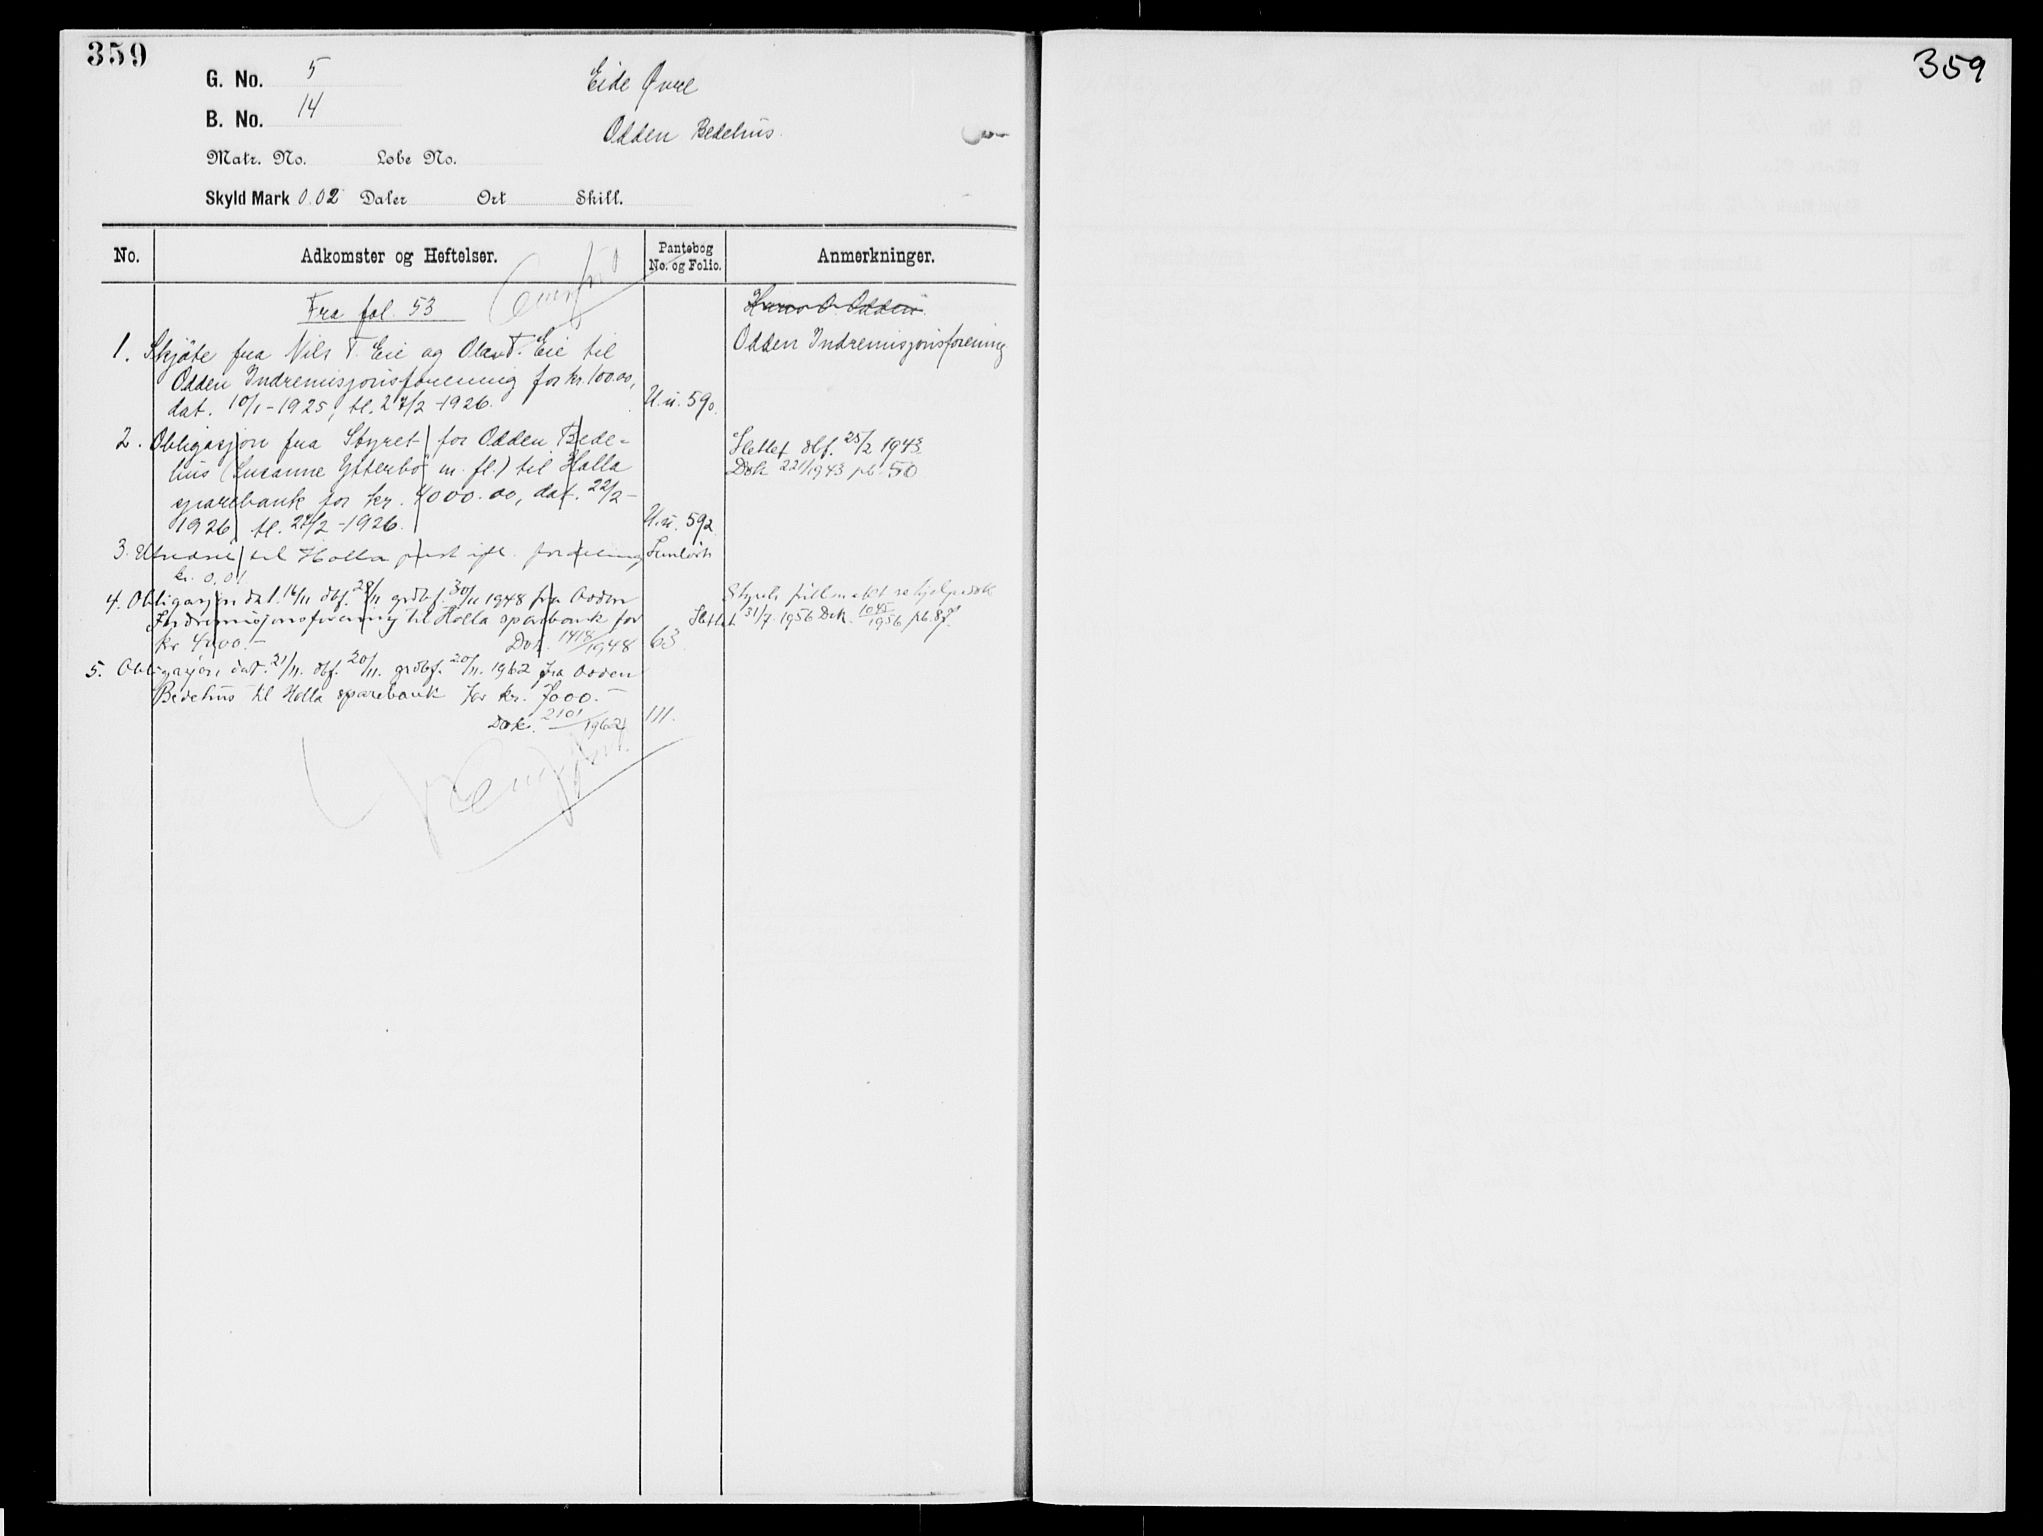 359
359
G. No. 5
Eide Øvre
B. No. 14
Odden Bedehus.
Matr. No. Løbe No.
Skyld Mark 0.02 Daler Ort Skill.
No. Adkomster og Heftelser. Pantebog No. og Folio. Anmerkninger.
Fra fol. 53
1. Skjøte fra Nils T. Eie og Olav T. Eie til
Odden Indremisjonsforening
Odden Indremisjonsforening for kr. 100.00,
dat. 10/1-1925, tl. 27/2-1926. U.u. 590.
2. Obligasjon fra Styret for Odden Bede-
hus (Susanne Ytterbø m. fl.) til Holla
sparebank for kr. 4000.00, dat. 22/2-
1926, tl. 27/2-1926. U.u. 592.
Slettet dbf. 25/2 1943.
Dok 221/1943 pb. 50
3. til Holla ifl.
kr. 0.01
4. Obligasjon dat. 16/11 dbf. 29/11 grdbf. 30/11 1948 fra Odden
Indremisjonsforening til Holla sparebank for
kr 4000.-
Dok. 1418/1948 63.
Styrets fullmakt se hjelpedok
Slettet 31/7. 1956 Dok. 1045/1956 pb. 87.
5. Obligasjon dat. 21/11. dbf. 20/11. grdbf. 20/11. 1962 fra Odden
Bedehus til Holla sparebank for kr. 7000.-
Dok. 2101/1962 111.